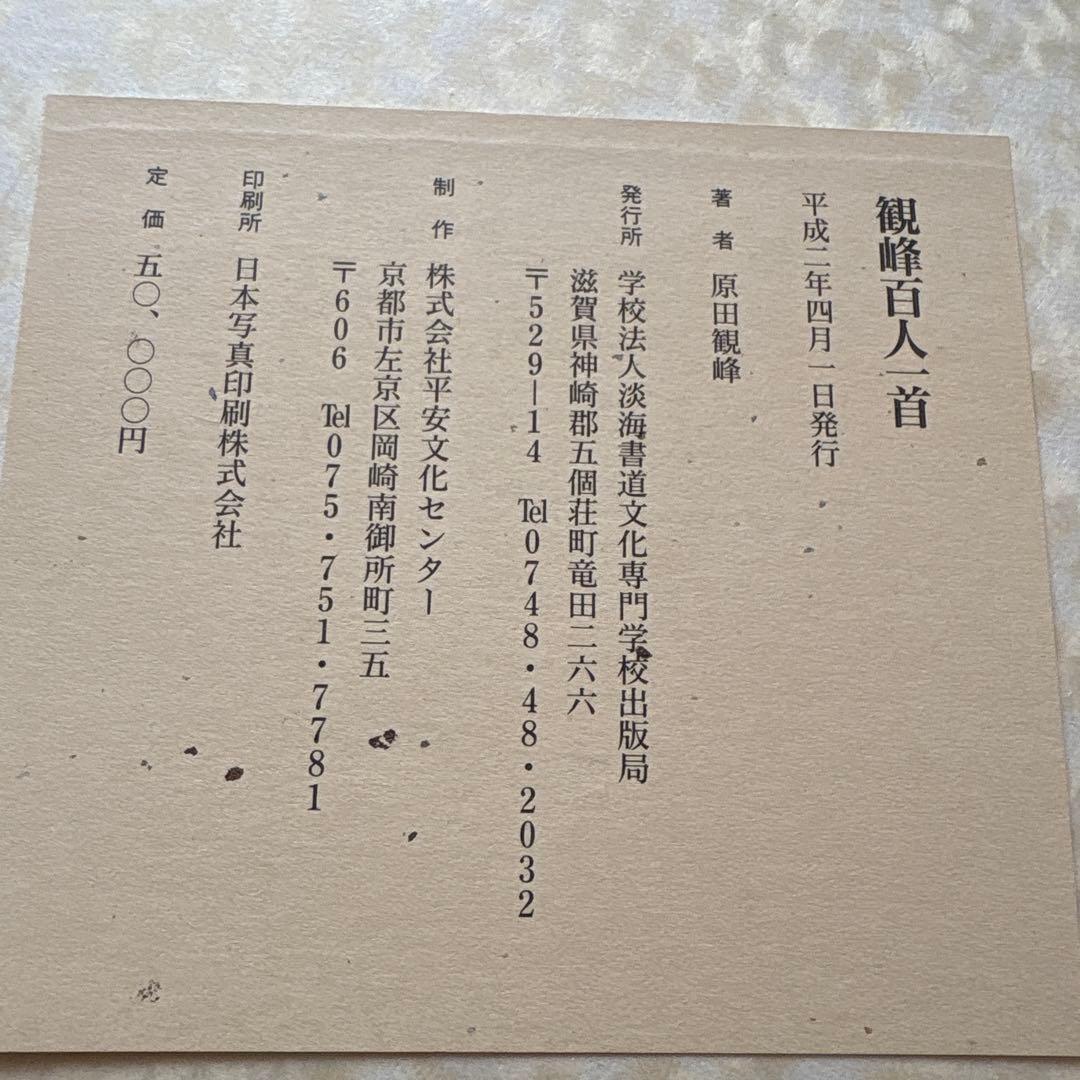 観峰百人一首
平成二年四月一日発行
著者 原田観峰
発行所 学校法人淡海書道文化専門学校出版局
滋賀県神崎郡五個荘町竜田二六六
〒529−14 Tel0748・48・2032
制作 株式会社平安文化センター
京都市左京区岡崎南御所町三五
〒606 Tel075・751・7781
印刷所 日本写真印刷株式会社
定価 五〇、〇〇〇円